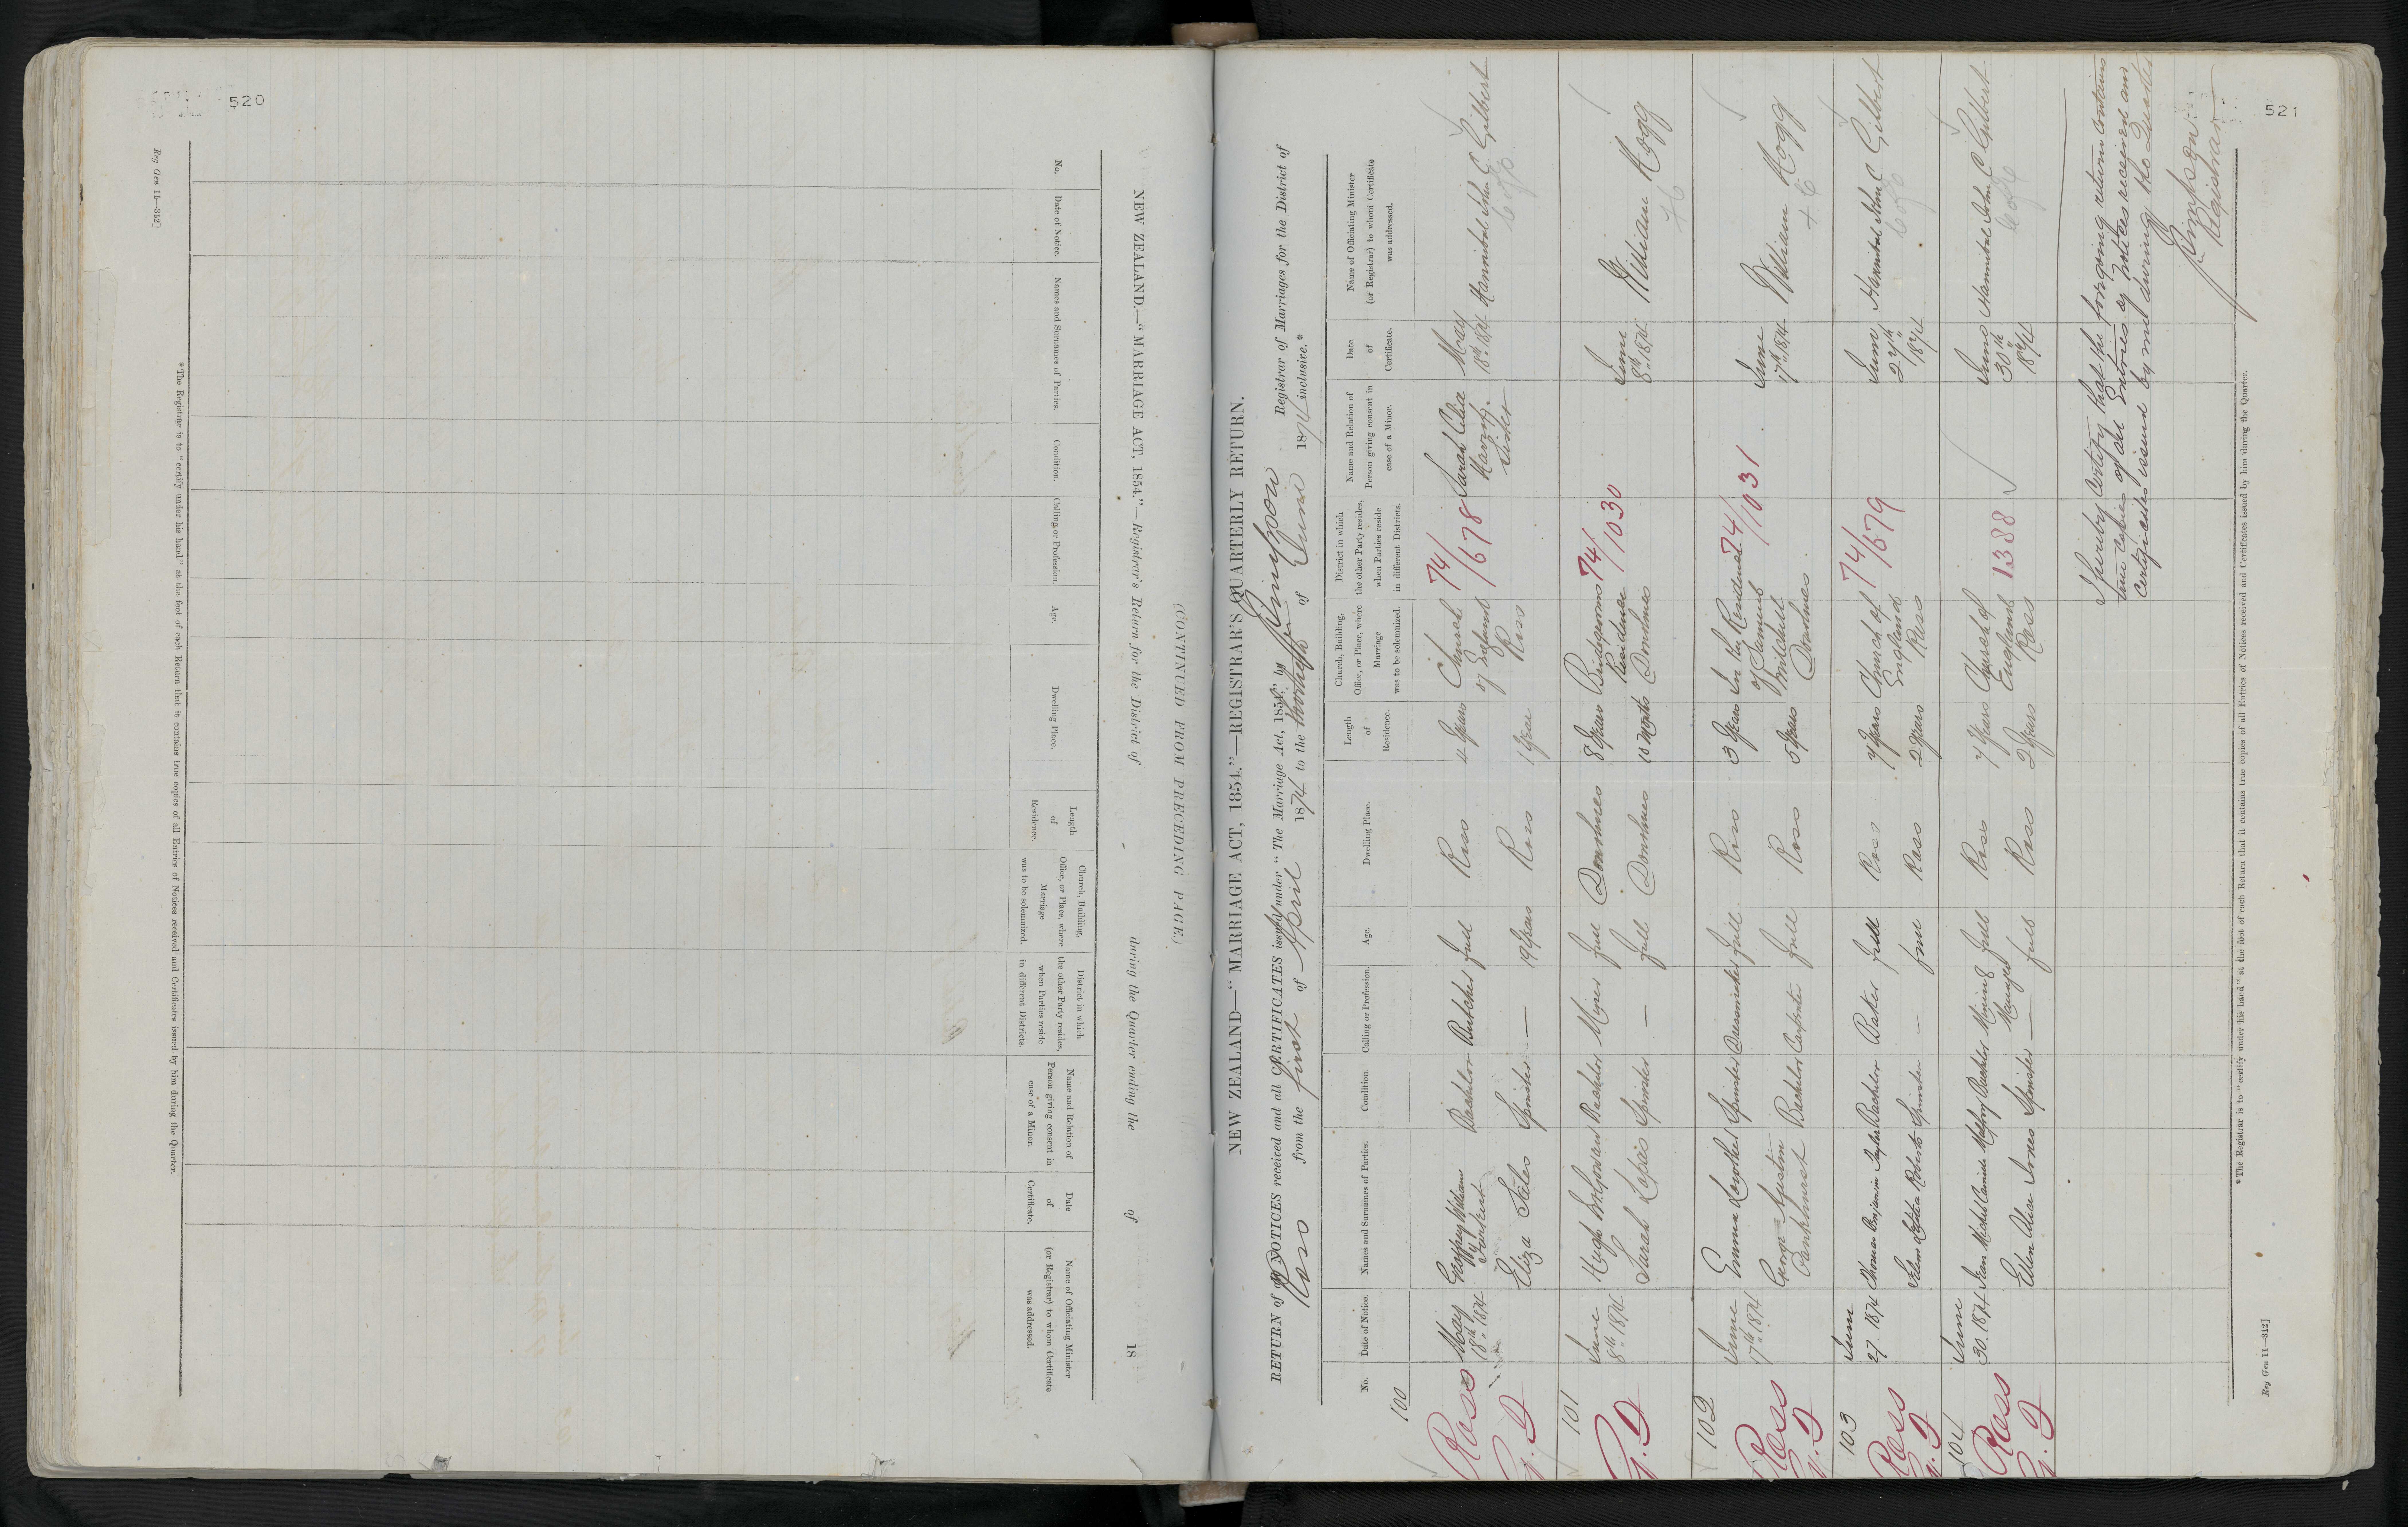 520
Reg Gen 11—312]
NEW ZEALAND.—"MARRIAGE ACT, 1854."—Registrar's Return for the District of during the Quarter ending the of 18
(CONTINUED FROM PRECEDING PAGE.)
No.
Date of Notice.
Names and Surnames of Parties.
Condition.
Calling or Profession.
Age.
Dwelling Place.
Length
of
Residence.
Church, Building,
Office, or Place, where
Marriage
was to be solemnized.
District in which
the other Party resides,
when Parties reside
in different Districts.
Name and Relation of
Person giving consent in
case of a Minor.
Date
of
Certificate.
Name of Officiating Minister
(or Registrar) to whom Certificate
was addressed.
*The Registrar is to "certify under his hand" at the foot of each Return that it contains true copies of all Entries of Notices received and Certificates issued by him during the Quarter.
521
NEW ZEALAND—"MARRIAGE ACT, 1854."—REGISTRAR'S QUARTERLY RETURN.
RETURN of all NOTICES received and all CERTIFICATES issued under "The Marriage Act, 1854," by Simpson Registrar of Marriages for the District of
Ross from the first of April 1874 to the thirtieth of June 1874 inclusive.*
No.
Date of Notice.
Names and Surnames of Parties.
Condition.
Calling or Profession.
Age.
Dwelling Place.
Length
of
Residence.
Church, Building,
Office, or Place, where
Marriage
was to be solemnized.
District in which
the other Party resides,
when Parties reside
in different Districts.
Name and Relation of
Person giving consent in
case of a Minor.
Date
of
Certificate.
Name of Officiating Minister
(or Registrar) to whom Certificate
was addressed.
100
Ross
May
18th 1874
William
Bachelor
Butcher
full
Ross
4 Years
Church
of England
Ross
74/678
Sarah
Sister
May
18th 1874
Hannibal John C. Gilbert
Eliza Stiles
Spinster
—
19 Years
Ross
1 Year
101
June
8th 1874
Hugh McGowan
Bachelor
Miner
full
Donohues
8 Years
Bridegrooms
Residence
Donohues
74/1030
June
8th 1874
William Hogg
Sarah
Spinster
—
full
Donohues
10 months
102
Ross
June
17th 1874
Emma
Spinster
Dressmaker
full
Ross
3 Years
In the Residence
of Samuel
Mitchell
Donohues
74/1031
June
17th 1874
William Hogg
George Austin
Pankhurst
Bachelor
Carpenter
full
Ross
5 Years
103
Ross
June
27. 1874
Thomas Benjamin Taylor
Bachelor
Baker
full
Ross
7 Years
Church of
England
Ross
74/679
June
27th
1874
Hannibal John C. Gilbert
Selina Roberts
Spinster
—
full
Ross
2 Years
104
Ross
June
30. 1874
Jean Michel Camille Malfroy
Bachelor
Mining
Manager
full
Ross
7 Years
Church of
England
Ross
1388
June
30th
1874
Hannibal John C. Gilbert
Ellen Alice Jones
Spinster
—
full
Ross
2 Years
I hereby Certify that the foregoing return contains
true Copies of all Entries of Notices received and
Certificates issued by me during the Quarter
Simpson
Registrar
*The Registrar is to "certify under his hand" at the foot of each Return that it contains true copies of all Entries of Notices received and Certificates issued by him during the Quarter.
Reg Gen 11—312]